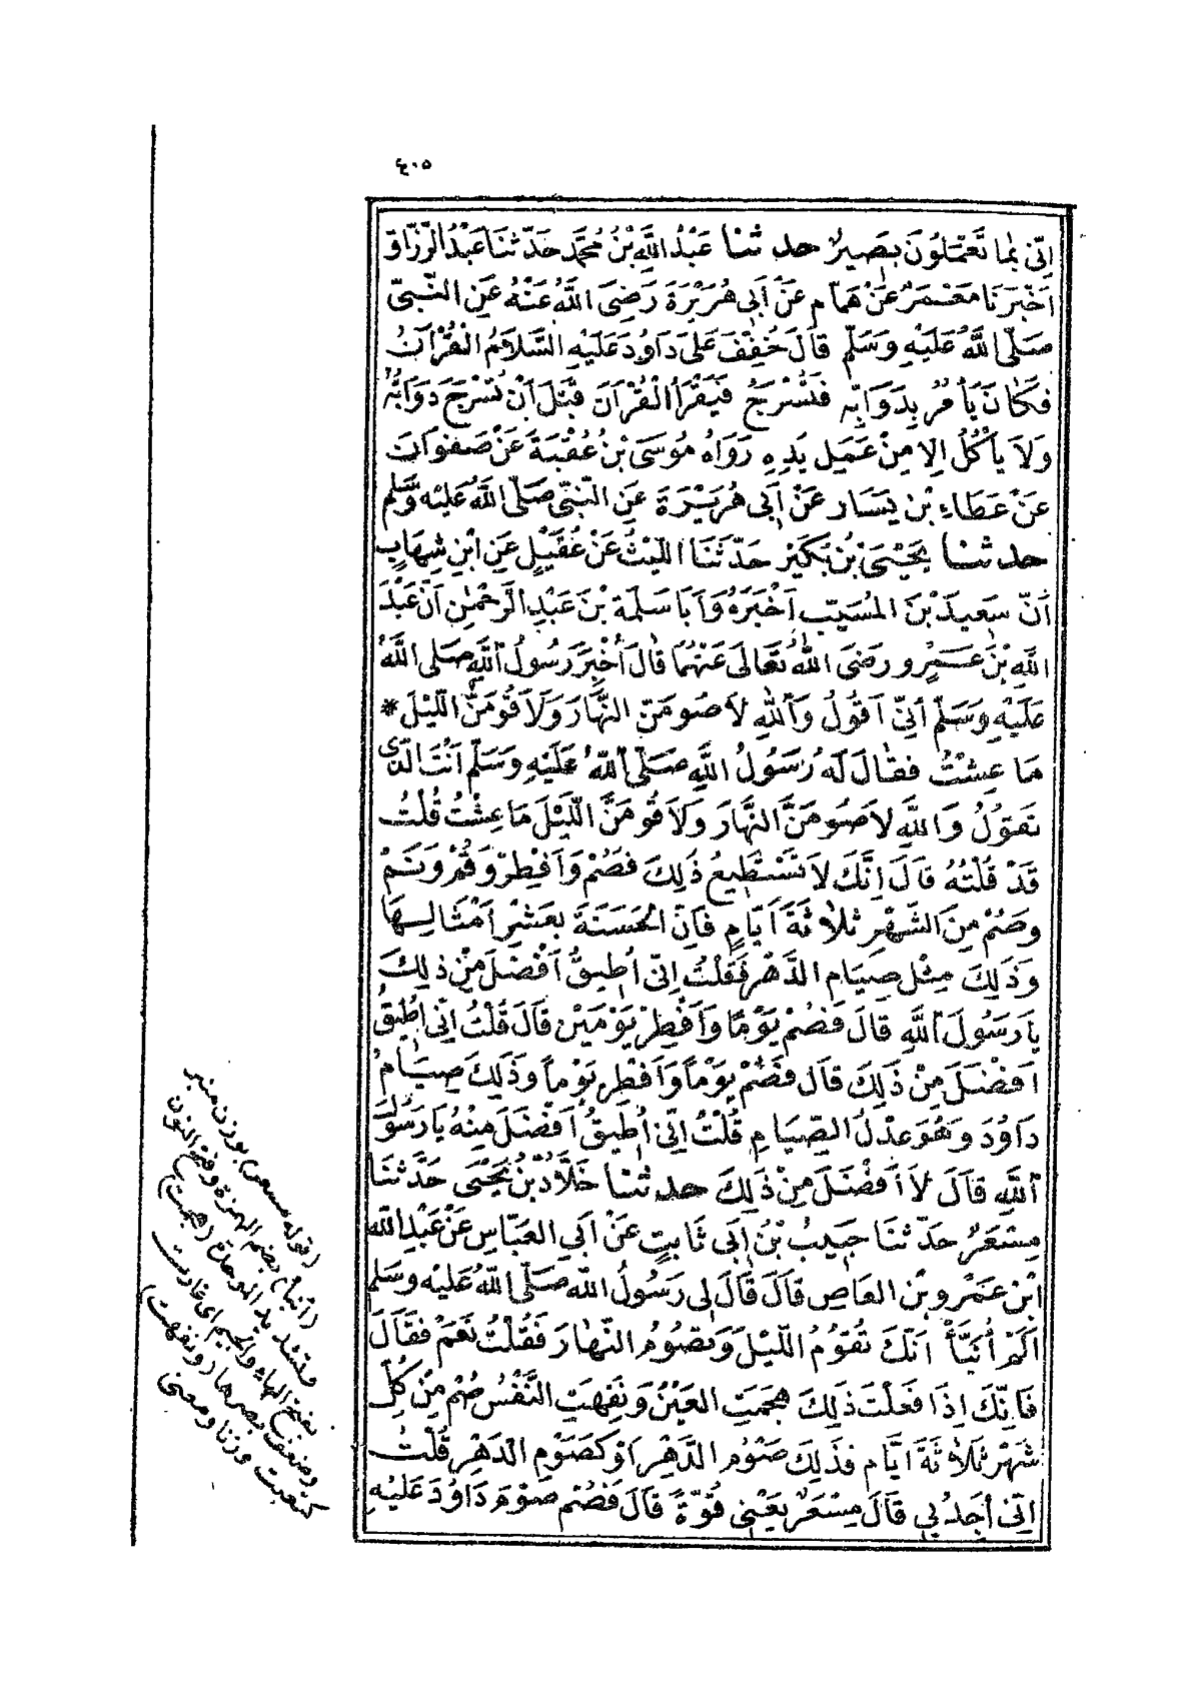 ٤٠٥
اِنِّى بِمَا تَعْمَلُونَ بَصِيرٌ حد ثنا عَبْدُ اللَّهِ بْنُ مُحَمَّدٍ حَدَّثَنَا عَبْدُ الرَّزَّاقِ
اَخْبَرَنَا مَعْمَرٌ عَنْ هَمَّامٍ عَنْ أَبِى هُرَيْرَةَ رَضِىَ اللَّهُ عَنْهُ عَنِ النَّبِىِّ
صَلَّى اللَّهُ عَلَيْهِ وَسَلَّمَ قَالَ خُفِّفَ عَلَى دَاوُدَ عَلَيْهِ السَّلَامُ الْقُرْآنُ
فَكَانَ يَأْمُرُ بِدَوَابِّهِ فَتُسْرَجُ فَيَقْرَأُ الْقُرْآنَ قَبْلَ اَنْ تُسْرَجَ دَوَابُّهُ
وَلَا يَأْكُلُ اِلَّا مِنْ عَمَلِ يَدِهِ رَوَاهُ مُوسَى بْنُ عُقْبَةَ عَنْ صَفْوَانَ
عَنْ عَطَاءِ بْنِ يَسَارٍ عَنْ أَبِى هُرَيْرَةَ عَنِ النَّبِىِّ صَلَّى اللَّهُ عَلَيْهِ وَسَلَّمَ
حد ثنا يَحْيَى بْنُ بُكَيْرٍ حَدَّثَنَا اللَّيْثُ عَنْ عُقَيْلٍ عَنِ ابْنِ شِهَابٍ
اَنَّ سَعِيدَ بْنَ الْمُسَيَّبِ اَخْبَرَهُ وَاَبَا سَلَمَةَ بْنَ عَبْدِ الرَّحْمٰنِ اَنَّ عَبْدَ
اللَّهِ بْنَ عَمْرٍو رَضِىَ اللَّهُ تَعَالَى عَنْهُمَا قَالَ أُخْبِرَ رَسُولُ اللَّهِ صَلَّى اللَّهُ
عَلَيْهِ وَسَلَّمَ أَنِّى اَقُولُ وَاللَّهِ لَاَصُومَنَّ النَّهَارَ وَلَاَقُومَنَّ اللَّيْلَ *
مَا عِشْتُ فَقَالَ لَهُ رَسُولُ اللَّهِ صَلَّى اللَّهُ عَلَيْهِ وَسَلَّمَ اَنْتَ الَّذِى
تَقُولُ وَاللَّهِ لَاَصُومَنَّ النَّهَارَ وَلَاَقُومَنَّ اللَّيْلَ مَا عِشْتُ قُلْتُ
قَدْ قُلْتُهُ قَالَ اِنَّكَ لَا تَسْتَطِيعُ ذَلِكَ فَصُمْ وَاَفْطِرْ وَقُمْ وَنَمْ
وَصُمْ مِنَ الشَّهْرِ ثَلَاثَةَ اَيَّامٍ فَاِنَّ الْحَسَنَةَ بِعَشْرِ اَمْثَالِهَا
وَذَلِكَ مِثْلُ صِيَامِ الدَّهْرِ فَقُلْتُ اِنِّى اُطِيقُ اَفْضَلَ مِنْ ذَلِكَ
يَا رَسُولَ اللَّهِ قَالَ فَصُمْ يَوْمًا وَاَفْطِرْ يَوْمَيْنِ قَالَ قُلْتُ اِنِّى اُطِيقُ
اَفْضَلَ مِنْ ذَلِكَ قَالَ فَصُمْ يَوْماً وَاَفْطِرْ يَوْماً وَذَلِكَ صِيَامُ
دَاوُدَ وَهُوَ عَدْلُ الصِّيَامِ قُلْتُ اِنِّى اُطِيقُ اَفْضَلَ مِنْهُ يَا رَسُولَ
اللَّهِ قَالَ لَا اَفْضَلَ مِنْ ذَلِكَ حد ثنا خَلَّادُ بْنُ يَحْيَى حَدَّثَنَا
مِسْعَرٌ حَدَّثَنَا حَبِيبُ بْنُ اَبِى ثَابِتٍ عَنْ اَبِى الْعَبَّاسِ عَنْ عَبْدِ اللَّهِ
ابْنِ عَمْرِو بْنِ الْعَاصِ قَالَ قَالَ لِى رَسُولُ اللَّهِ صَلَّى اللَّهُ عَلَيْهِ وَسَلَّمَ
اَلَمْ أُنَبَّأْ اَنَّكَ تَقُومُ اللَّيْلَ وَتَصُومُ النَّهَارَ فَقُلْتُ نَعَمْ فَقَالَ
فَاِنَّكَ اِذَا فَعَلْتَ ذَلِكَ هَجَمَتِ الْعَيْنُ وَنَفِهَتِ النَّفْسُ صُمْ مِنْ كُلِّ
شَهْرٍ ثَلَاثَةَ اَيَّامٍ فَذَلِكَ صَوْمُ الدَّهْرِ اَوْ كَصَوْمِ الدَّهْرِ قُلْتُ
اِنِّى اَجِدُ بِى قَالَ مِسْعَرٌ يَعْنِى قُوَّةً قَالَ فَصُمْ صَوْمَ دَاوُدَ عَلَيْهِ
(قوله مسعر) بوزن منبر
(أنبأ) بضم الهمزة وفتح النون
وتشديد الموحدة (هجمت)
بفتح الهاء والجيم اى غارت
وضعف بصرها (ونفهت)
كتعبت وزنا ومعنى